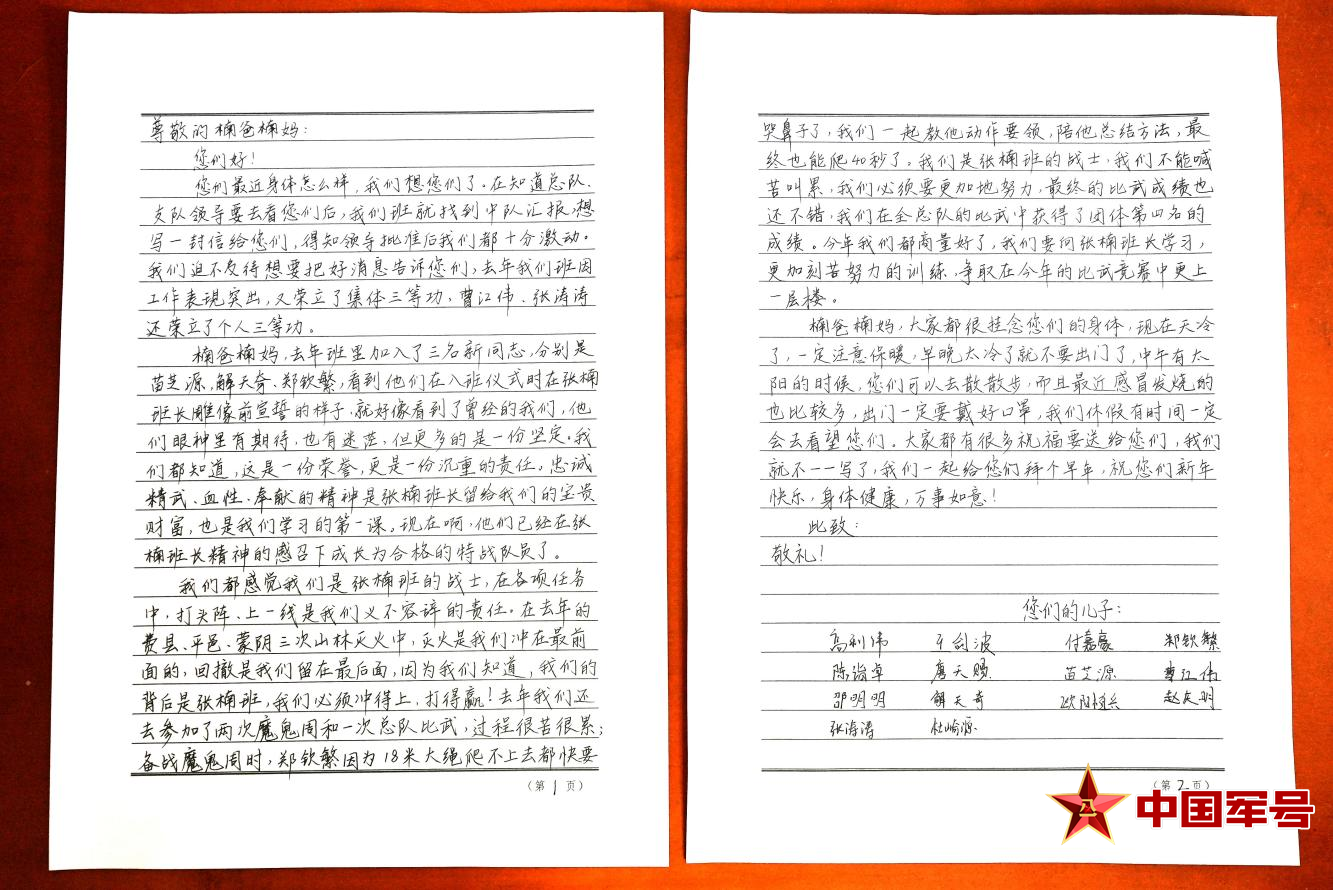 尊敬的楠爸楠妈：
您们好！
您们最近身体怎么样，我们想您们了。在知道总队、
支队领导要去看您们后，我们班就找到中队汇报，想
写一封信给您们，得知领导批准后我们都十分激动。
我们迫不及待想要把好消息告诉您们，去年我们班因
工作表现突出，又荣立了集体三等功，曹江伟、张涛涛
还荣立了个人三等功。
楠爸楠妈，去年班里加入了三名新同志，分别是
苗芝源，解天奇、郑钦繁，看到他们在入班仪式时在张楠
班长雕像前宣誓的样子，就好像看到了曾经的我们，他
们眼神里有期待，也有迷茫，但更多的是一份坚定。我
们都知道，这是一份荣誉，更是一份沉重的责任。忠诚
精武、血性、奉献的精神是张楠班长留给我们的宝贵
财富，也是我们学习的第一课。现在啊，他们已经在张
楠班长精神的感召下成长为合格的特战队员了。
我们都感觉我们是张楠班的战士，在各项任务
中，打头阵、上一线是我们义不容辞的责任。在去年的
费县、平邑、蒙阴三次山林灭火中，灭火是我们冲在最前
面的，回撤是我们留在最后面，因为我们知道，我们的
背后是张楠班，我们必须冲得上，打得赢！去年我们还
去参加了两次魔鬼周和一次总队比武，过程很苦很累；
备战魔鬼周时，郑钦繁因为18米大绳爬不上去都快要
（第1页）
哭鼻子了，我们一起教他动作要领，陪他总结方法，最
终也能爬40秒了。我们是张楠班的战士，我们不能喊
苦叫累，我们必须要更加地努力，最终的比武成绩也
还不错，我们在全总队的比武中获得了团体第四名的
成绩。今年我们都商量好了，我们要向张楠班长学习，
更加刻苦努力的训练，争取在今年的比武竞赛中更上
一层楼。
楠爸楠妈，大家都很挂念您们的身体，现在天冷
了，一定注意保暖，早晚太冷了就不要出门了，中午有太
阳的时候，您们可以去散散步，而且最近感冒发烧的
也比较多，出门一定要戴好口罩，我们休假有时间一定
会去看望您们。大家都有很多祝福要送给您们，我们
就不一一写了，我们一起给您们拜个早年，祝您们新年
快乐，身体健康，万事如意！
此致：
敬礼！
您们的儿子：
高利伟 付嘉豪 郑钦繁
唐天赐 苗芝源 曹江伟
邵明明 解天奇 赵庆明
张涛涛
（第2页）
中国军号